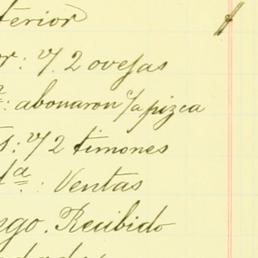 terior
r: 72 ovejas
ª: abonaron c/a pizca
s: 72 timones
tª: Ventas
ngo. Recibido